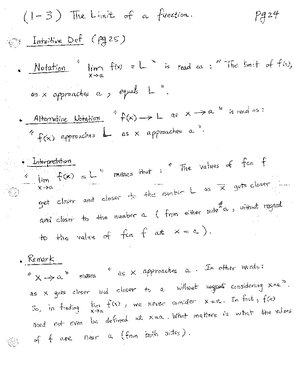 (1-3) The Limit of a function. Pg 24
Intuitive Def (Pg 25)
• Notation " lim f(x) = L " is read as : " The limit of f(x),
x→a
as x approaches a, equals L ".
• Alternative Notation. " f(x) → L as x → a " is read as :
" f(x) approaches L as x approaches a ".
• Interpretation
" lim f(x) = L " means that : " The values of fcn f
x→a
get closer and closer to the number L as x gets closer
and closer to the number a ( from either side of a, without regard
to the value of fcn f at x = a ).
• Remark
" x → a " means " as x approaches a. In other words:
as x gets closer and closer to a without considering x=a ".
So, in finding lim f(x), we never consider x = a. In fact, f(x)
x→a
need not even be defined at x=a. What matters is what the values
of f are near a (from both sides).